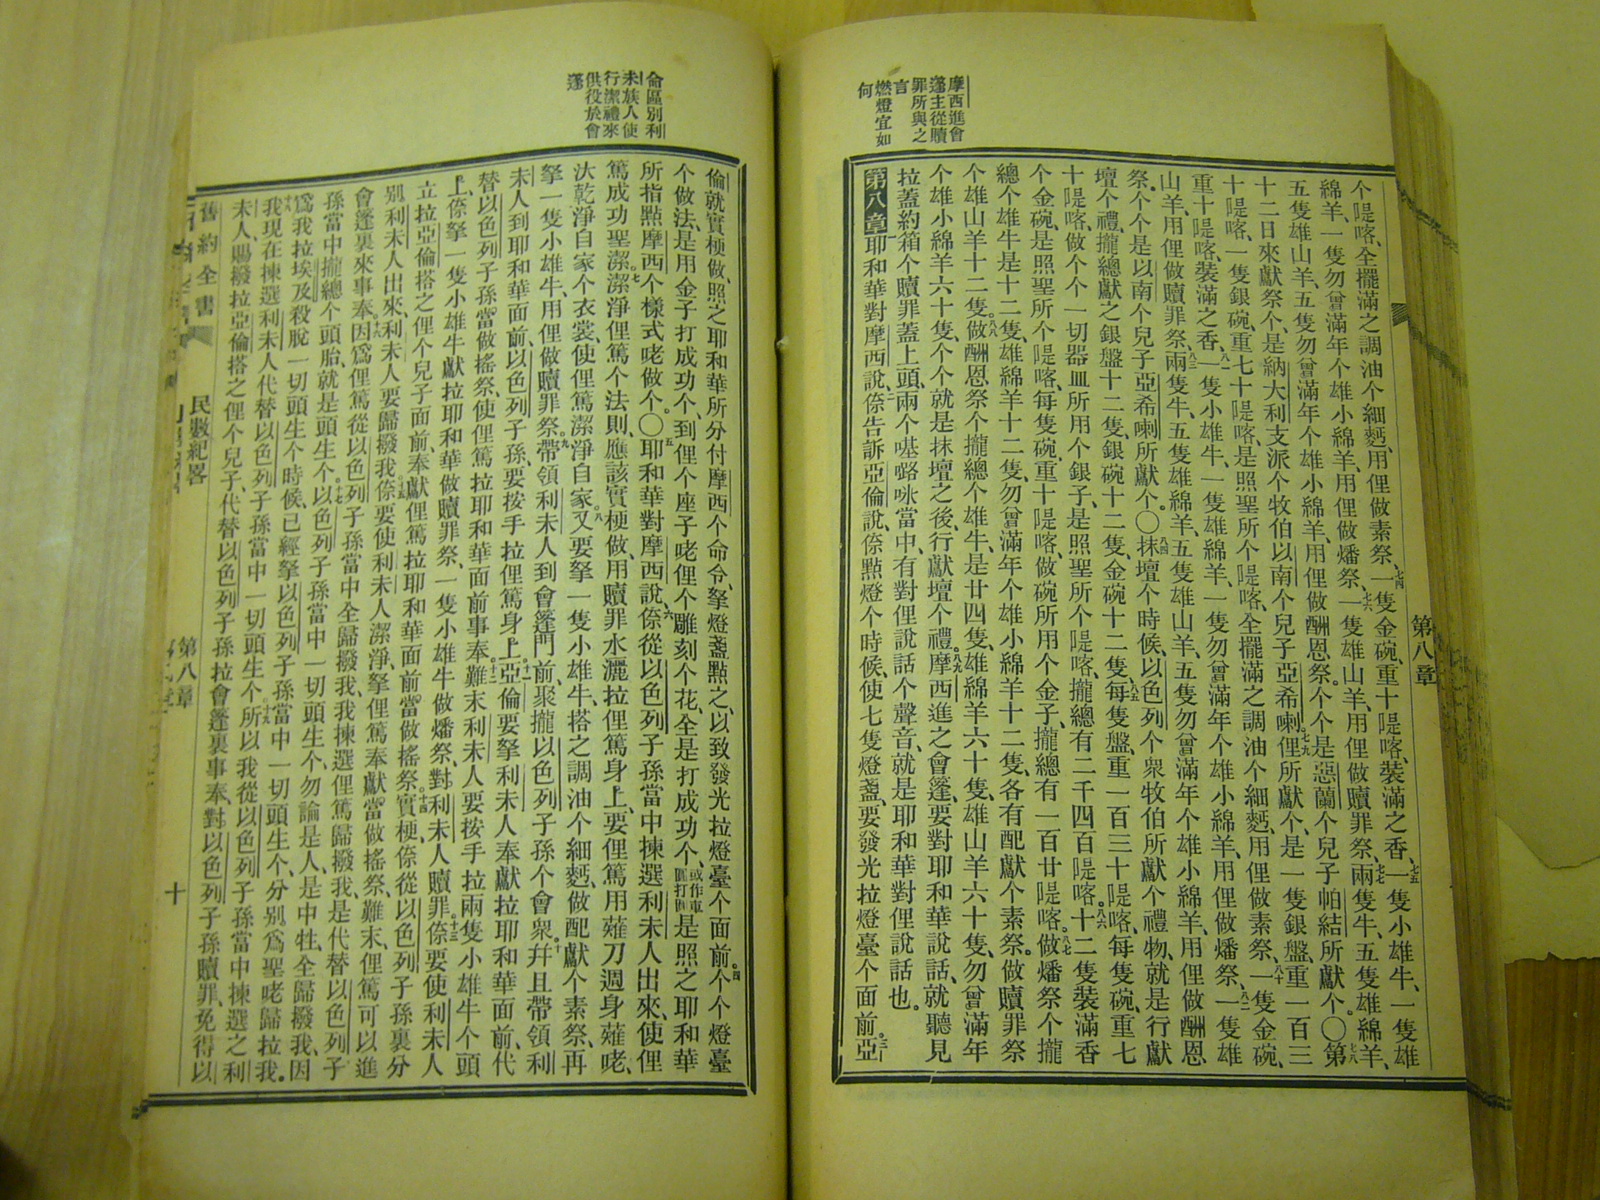 第八章
摩西進會
蓬主從贖
罪所與之
言
燃燈宜如
何
个隄喀、全擺滿之調油个細麪、用俚做素祭、七四一隻金碗、重十隄喀、裝滿之香、七五一隻小雄牛、一隻雄
綿羊、一隻勿曾滿年个雄小綿羊、用俚做燔祭、七六一隻雄山羊、用俚做贖罪祭、七七兩隻牛、五隻雄綿羊、
五隻雄山羊、五隻勿曾滿年个雄小綿羊、用俚做酬恩祭。个个是惡蘭个兒子帕結所獻个。〇七八第
十二日來獻祭个、是納大利支派个牧伯以南个兒子亞希喇、七九俚所獻个、是一隻銀盤、重一百三
十隄喀、一隻銀碗、重七十隄喀、是照聖所个隄喀、全擺滿之調油个細麪、用俚做素祭、八十一隻金碗、
重十隄喀、裝滿之香、八一一隻小雄牛、一隻雄綿羊、一隻勿曾滿年个雄小綿羊、用俚做燔祭、八二一隻雄
山羊、用俚做贖罪祭、八三兩隻牛、五隻雄綿羊、五隻雄山羊、五隻勿曾滿年个雄小綿羊、用俚做酬恩
祭。个个是以南个兒子亞希喇所獻个。〇八四抹壇个時候、以色列个衆牧伯所獻个禮物、就是行獻
壇个禮、攏總獻之銀盤十二隻、銀碗十二隻、金碗十二隻、八五每隻盤、重一百三十隄喀、每隻碗、重七
十隄喀、做个个一切器皿所用个銀子、是照聖所个隄喀、攏總有二千四百隄喀。八六十二隻裝滿香
个金碗、是照聖所个隄喀、每隻碗、重十隄喀、做碗所用个金子、攏總有一百廿隄喀。八七做燔祭个攏
總个雄牛是十二隻、雄綿羊十二隻、勿曾滿年个雄小綿羊十二隻、各有配獻个素祭。做贖罪祭
个雄山羊十二隻。八八做酬恩祭个攏總个雄牛、是廿四隻、雄綿羊六十隻、雄山羊六十隻、勿曾滿年
个雄小綿羊六十隻、个个就是抹壇之後、行獻壇个禮。八九摩西進之會蓬、要對耶和華說話、就聽見
拉蓋約箱个贖罪蓋上頭、兩个𠸄㘔咏當中、有對俚說話个聲音、就是耶和華對俚說話也。
第八章 一耶和華對摩西說、二倷告訴亞倫說、倷點燈个時候、使七隻燈盞、要發光拉燈臺个面前。三亞
侖區別利
未族人使
行潔禮來
供役於會
蓬
倫就實梗做、照之耶和華所分付摩西个命令、拏燈盞點之、以致發光拉燈臺个面前。四个个燈臺
个做法、是用金子打成功个、到俚个座子咾俚个雕刻个花、全是打成功个、是照之耶和華
所指點摩西个樣式咾做个。〇五耶和華對摩西說、六倷從以色列子孫當中揀選利未人出來、使俚
篤成功聖潔。七潔淨俚篤个法則、應該實梗做、用贖罪水灑拉俚篤身上、要俚篤用薙刀週身薙咾、
汏乾淨自家个衣裳、使俚篤潔淨自家。八又要拏一隻小雄牛、搭之調油个細麪做配獻个素祭、再
拏一隻小雄牛、用俚做贖罪祭。九帶領利未人到會蓬門前、聚攏以色列子孫个會衆、十幷且帶領利
未人到耶和華面前、以色列子孫、要按手拉俚篤身上。十一亞倫要拏利未人奉獻拉耶和華面前、代
替以色列子孫當做搖祭、使俚篤拉耶和華面前事奉。十二難末利未人要按手拉兩隻小雄牛个頭
上、倷拏一隻小雄牛獻拉耶和華做贖罪祭、一隻小雄牛做燔祭、對利未人贖罪。十三倷要使利未人
立拉亞倫搭之俚个兒子面前、奉獻俚篤拉耶和華面前當做搖祭。十四實梗、倷從以色列子孫裏分
別利未人出來、利未人要歸撥我。十五倷要使利未人潔淨、拏俚篤奉獻當做搖祭、難末、俚篤可以進
會蓬裏來事奉。十六因爲俚篤從以色列子孫當中全歸撥我、我揀選俚篤歸撥我、是代替以色列子
孫當中攏總个頭胎、就是頭生个。十七以色列子孫當中一切頭生个、勿論是人、是中牲、全歸撥我、因
爲我拉埃及殺脫一切頭生个時候、已經拏以色列子孫當中一切頭生个、分別爲聖咾歸拉我。
十八我現在揀選利未人代替以色列子孫當中一切頭生个。十九所以我從以色列子孫當中揀選之利
未人、賜撥拉亞倫搭之俚个兒子、代替以色列子孫拉會蓬裏事奉、對以色列子孫贖罪、免得以
舊約全書
民數紀畧
第八章
十